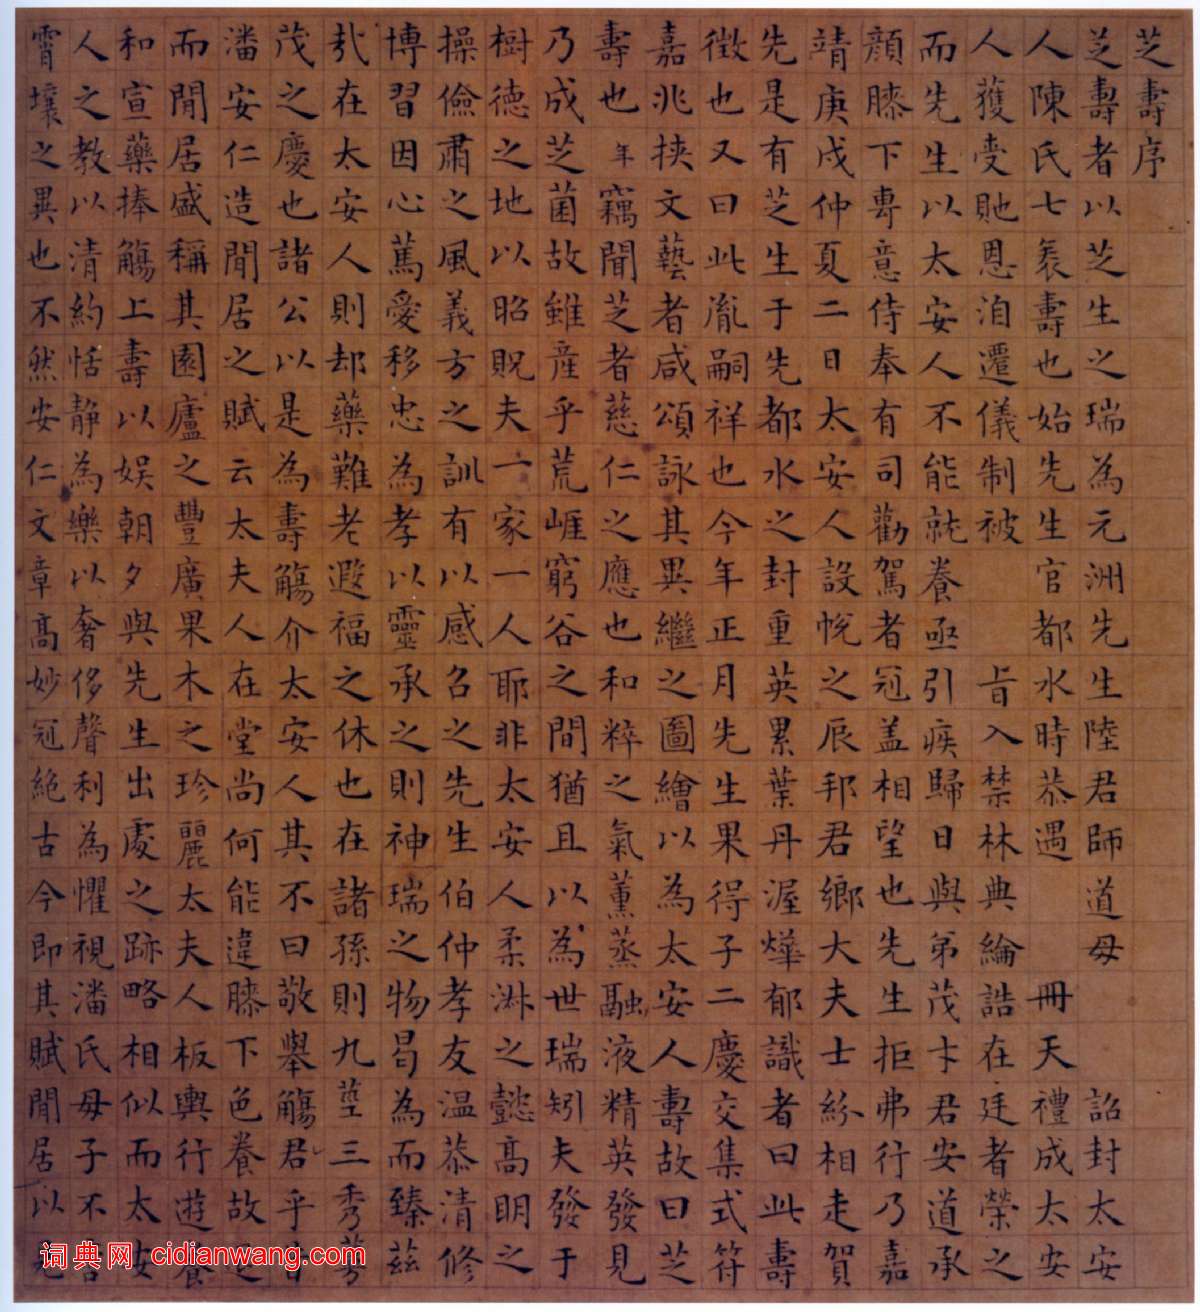 芝壽序
芝壽者以芝生之瑞為元洲先生陸君師道母 詔封太安
人陳氏七袠壽也始先生官都水時恭遇 冊天禮成太安
人獲受貤恩洎遷儀制被 旨入禁林典綸誥在廷者榮之
而先生以太安人不能就養亟引疾歸日與弟茂才君安道承
顏膝下專意侍奉有司勸駕者冠蓋相望也先生拒弗行乃嘉
靖庚戌仲夏二日太安人設帨之辰邦君鄉大夫士紛相走賀
先是有芝生于先都水之封重英累葉丹渥燁郁識者曰此壽
徵也又曰此胤嗣祥也今年正月先生果得子二慶交集式符
嘉兆挾文藝者咸頌詠其異繼之圖繪以為太安人壽故曰芝
壽也年竊聞芝者慈仁之應也和粹之氣薰蒸融液精英發見
乃成芝菌故雖產乎荒崕窮谷之間猶且以為世瑞矧夫發于
樹德之地以昭貺夫一家一人耶非太安人柔淋之懿高明之
操儉肅之風義方之訓有以感召之先生伯仲孝友温恭清修
博習因心篤愛移忠為孝以靈承之則神瑞之物曷為而臻茲
㢤在太安人則却藥難老遐福之休也在諸孫則九莖三秀芳
茂之慶也諸公以是為壽觴介太安人其不曰敬舉觴君乎昔
潘安仁造閒居之賦云太夫人在堂尚何能違膝下色養故
而閒居盛稱其園廬之豐廣果木之珍麗太夫人板輿行遊養
和宣藥捧觴上壽以娛朝夕與先生出處之跡略相似而太安
人之教以清約恬静為樂以奢侈聲利為懼視潘氏母子不
霄壤之異也不然安仁文章高妙冠絶古今即其賦閒居以
词典网 cidianwang.com